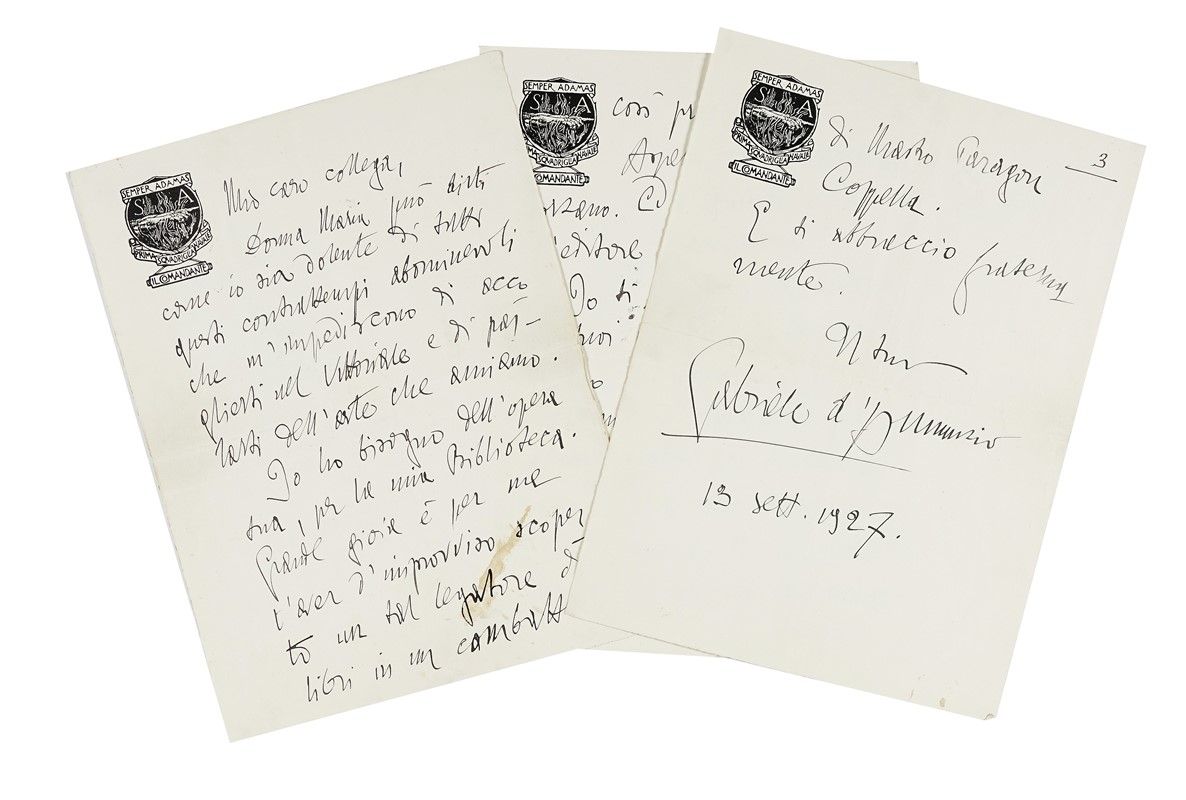 SEMPER ADAMAS
S A
PRIMA SQUADRIGLIA NAVALE
IL COMANDANTE
Mio caro collega,
Donna Maria può dirti
come io sia dolente di tutti
questi contrattempi abominevoli
che m'impediscono di acco
glierti nel Vittoriale e di par-
larti dell'arte che amiamo.
Io ho bisogno dell'opera
tua, per la mia Biblioteca.
Grande gioia è per me
l'aver d'improvviso scoper
to un tal legatore d
libri in un combatt
SEMPER ADAMAS
S A
PRIMA SQUADRIGLIA NAVALE
IL COMANDANTE
così pr
Aspe
editore
Io ti
3
SEMPER ADAMAS
S A
PRIMA SQUADRIGLIA NAVALE
IL COMANDANTE
di Mastro Paragon
Coppella.
E ti abbraccio fraterna
mente.
Il tuo
Gabriele d'Annunzio
13 sett. 1927.